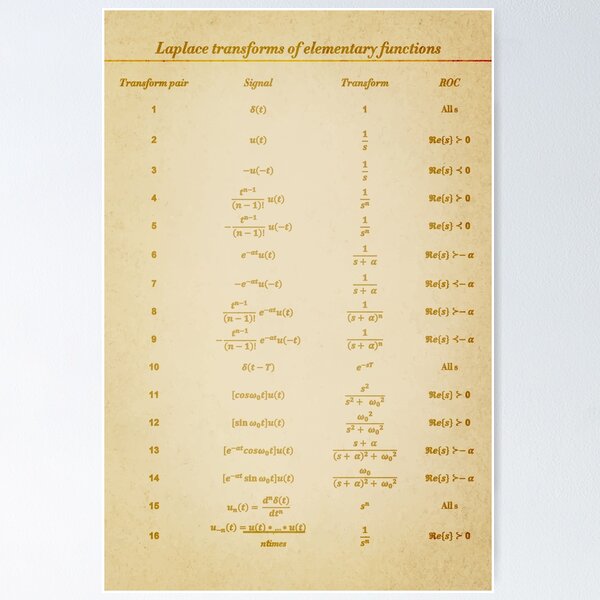 Laplace transforms of elementary functions
Transform pair Signal Transform ROC
1 δ(t) 1 All s
2 u(t) 1/s ℜe{s} ≻ 0
3 −u(−t) 1/s ℜe{s} ≺ 0
4 t^{n−1}/(n − 1)! u(t) 1/s^n ℜe{s} ≻ 0
5 −t^{n−1}/(n − 1)! u(−t) 1/s^n ℜe{s} ≺ 0
6 e^{−αt}u(t) 1/(s + α) ℜe{s} ≻ − α
7 −e^{−αt}u(−t) 1/(s + α) ℜe{s} ≺ − α
8 t^{n−1}/(n − 1)! e^{−αt}u(t) 1/(s + α)^n ℜe{s} ≻ − α
9 −t^{n−1}/(n − 1)! e^{−αt}u(−t) 1/(s + α)^n ℜe{s} ≺ − α
10 δ(t − T) e^{−sT} All s
11 [cosω₀t]u(t) s²/(s² + ω₀²) ℜe{s} ≻ 0
12 [sin ω₀t]u(t) ω₀²/(s² + ω₀²) ℜe{s} ≻ 0
13 [e^{−αt}cosω₀t]u(t) (s + α)/((s + α)² + ω₀²) ℜe{s} ≻ − α
14 [e^{−αt} sin ω₀t]u(t) ω₀/((s + α)² + ω₀²) ℜe{s} ≻ − α
15 uₙ(t) = dⁿδ(t)/dtⁿ sⁿ All s
16 u₋ₙ(t) = u(t) ∗ … ∗ u(t) 1/sⁿ ℜe{s} ≻ 0
ntimes